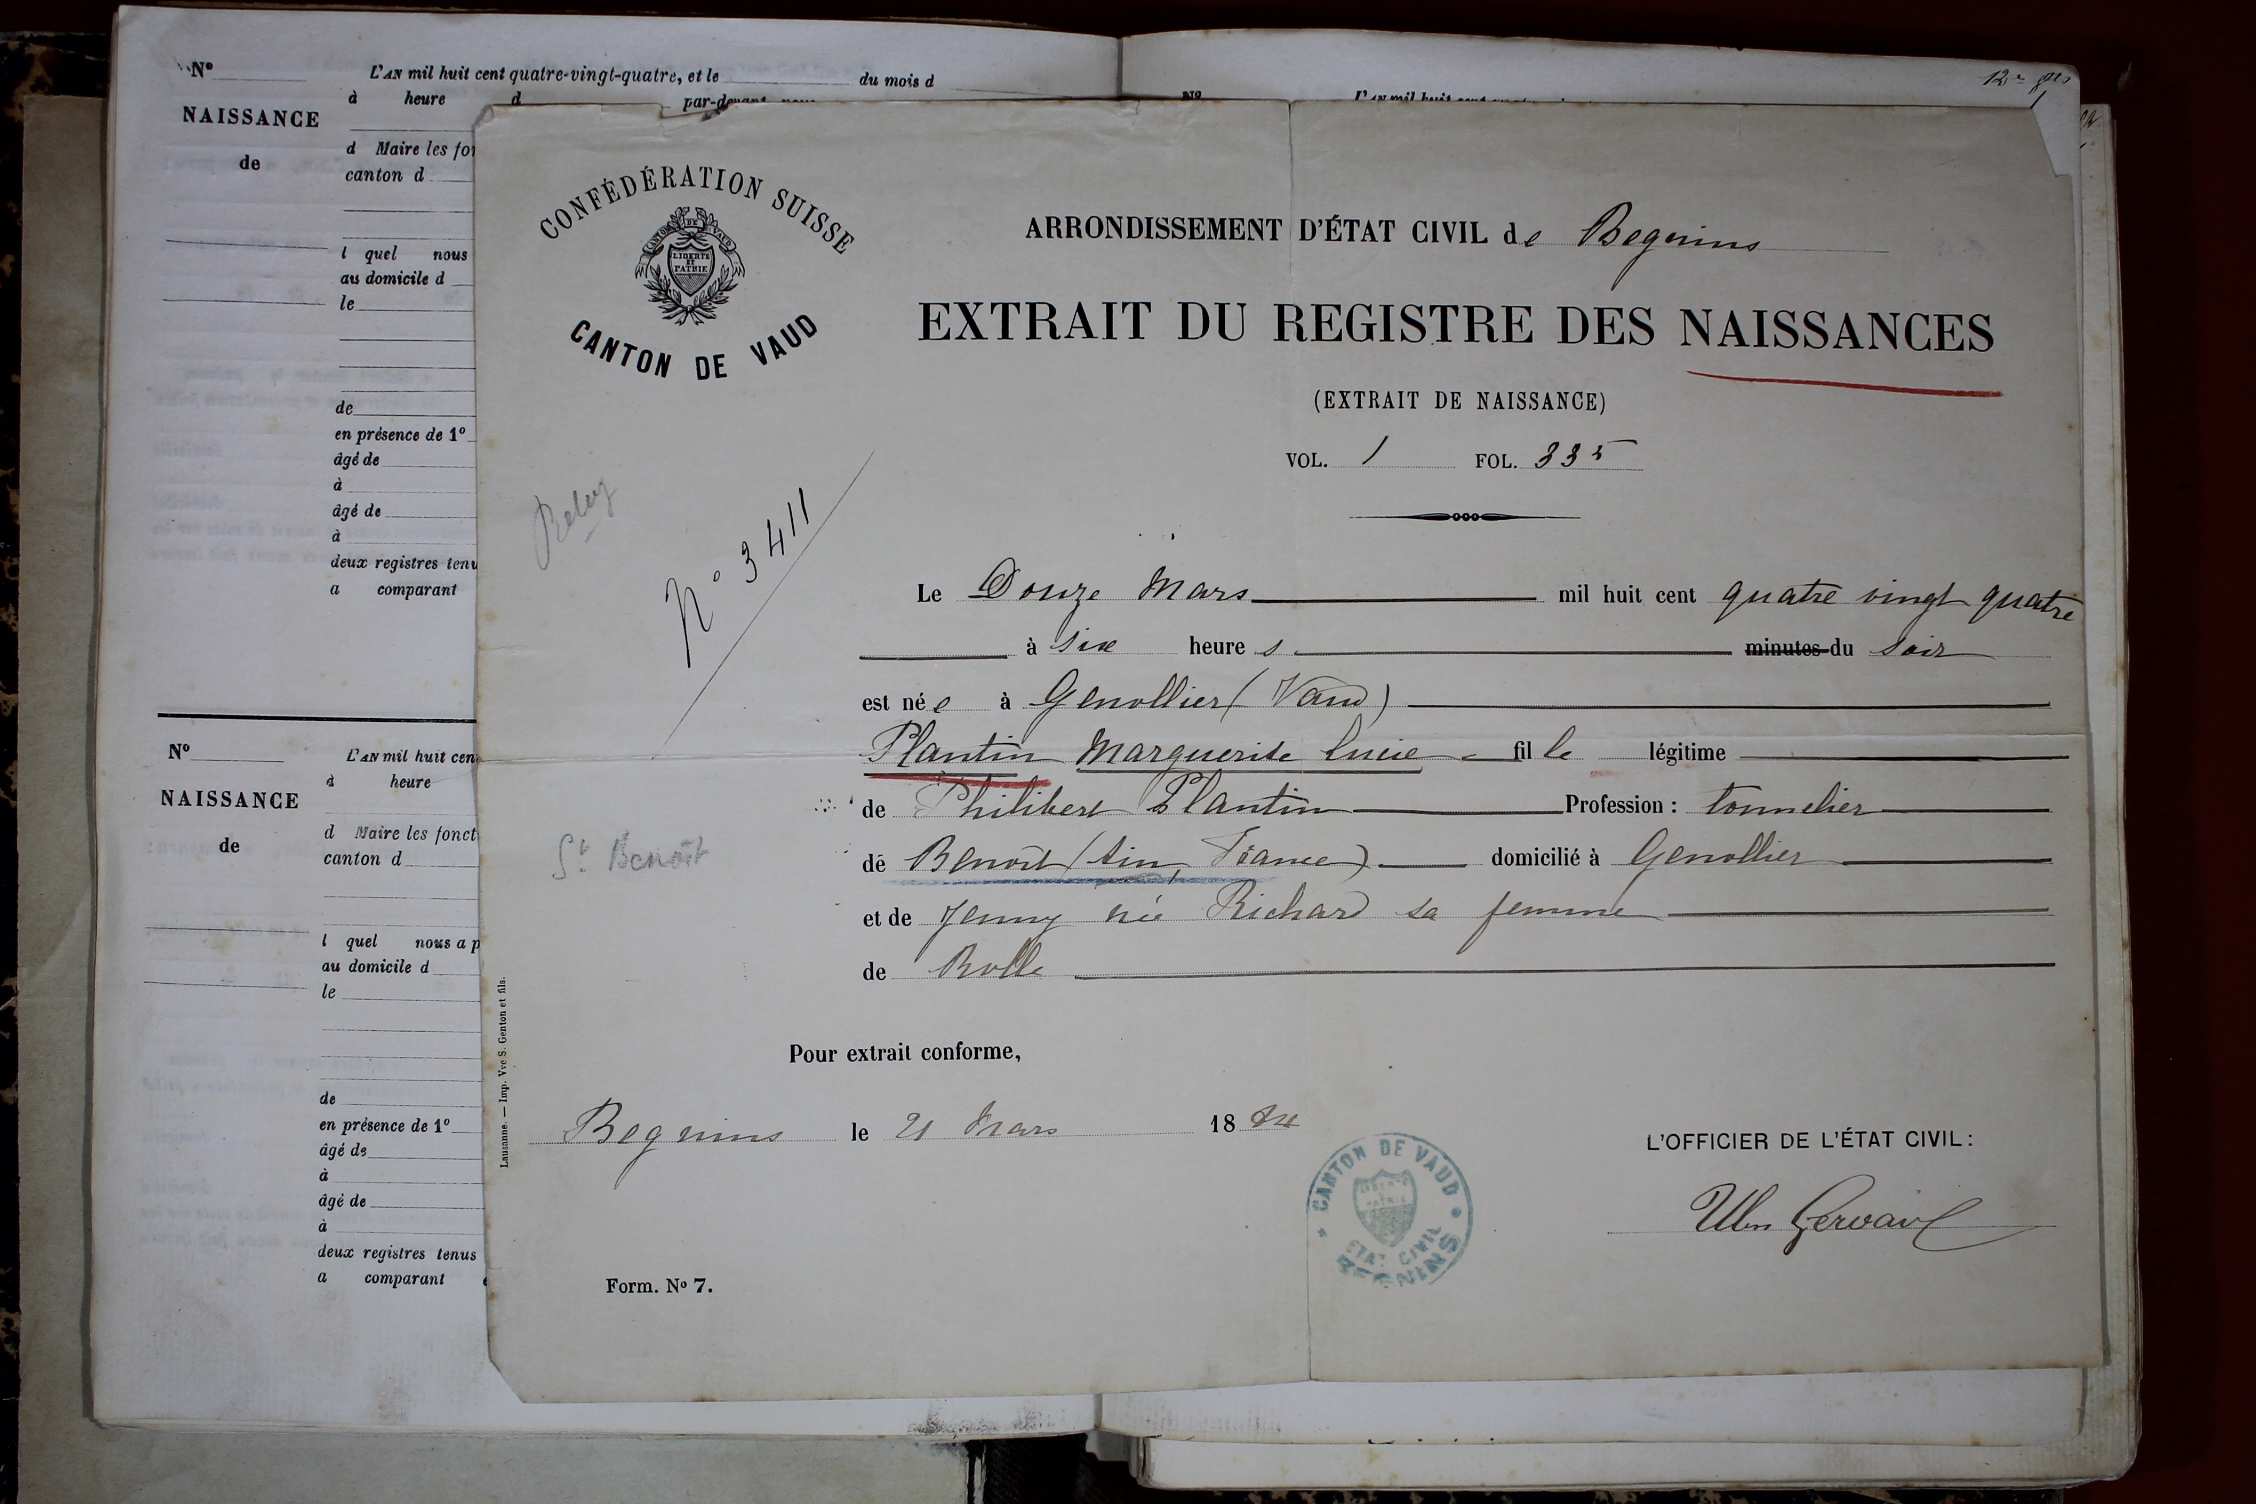 Nº
L'AN mil huit cent quatre-vingt-quatre, et le du mois d
à heure d par-devant nous
NAISSANCE
de
d Maire les fo
canton d
l quel nous
au domicile d
le
de
en présence de 1º
âgé de
à
âgé de
à
deux registres tenu
a comparant
Nº
L'AN mil huit cen
à heure
NAISSANCE
de
d Maire les fonct
canton d
l quel nous a p
au domicile d
le
de
en présence de 1º
âgé de
à
âgé de
à
deux registres tenus
a comparant
Nº L'AN mil huit cent
CONFÉDÉRATION SUISSE
CANTON DE VAUD
LIBERTÉ
ET
PATRIE
CANTON DE VAUD
ARRONDISSEMENT D'ÉTAT CIVIL de Begnins
EXTRAIT DU REGISTRE DES NAISSANCES
(EXTRAIT DE NAISSANCE)
VOL. 1 FOL. 335
Nº 3411
Le Douze Mars mil huit cent quatre vingt quatre
à six heures minutes du soir
est née à Genollier (Vaud)
Plantin Marguerite Lucie fille légitime
de Philibert Plantin Profession : tonnelier
St. Benoît
de Benoit (Ain, France) domicilié à Genollier
et de Jenny née Richard sa femme
de Rolle
Pour extrait conforme,
Begnins le 21 Mars 1884
L'OFFICIER DE L'ÉTAT CIVIL :
Gervaix
CANTON DE VAUD
LIBERTÉ
PATRIE
ETAT CIVIL
BEGNINS
Form. Nº 7.
Lausanne. — Imp. Vve S. Genton et fils.